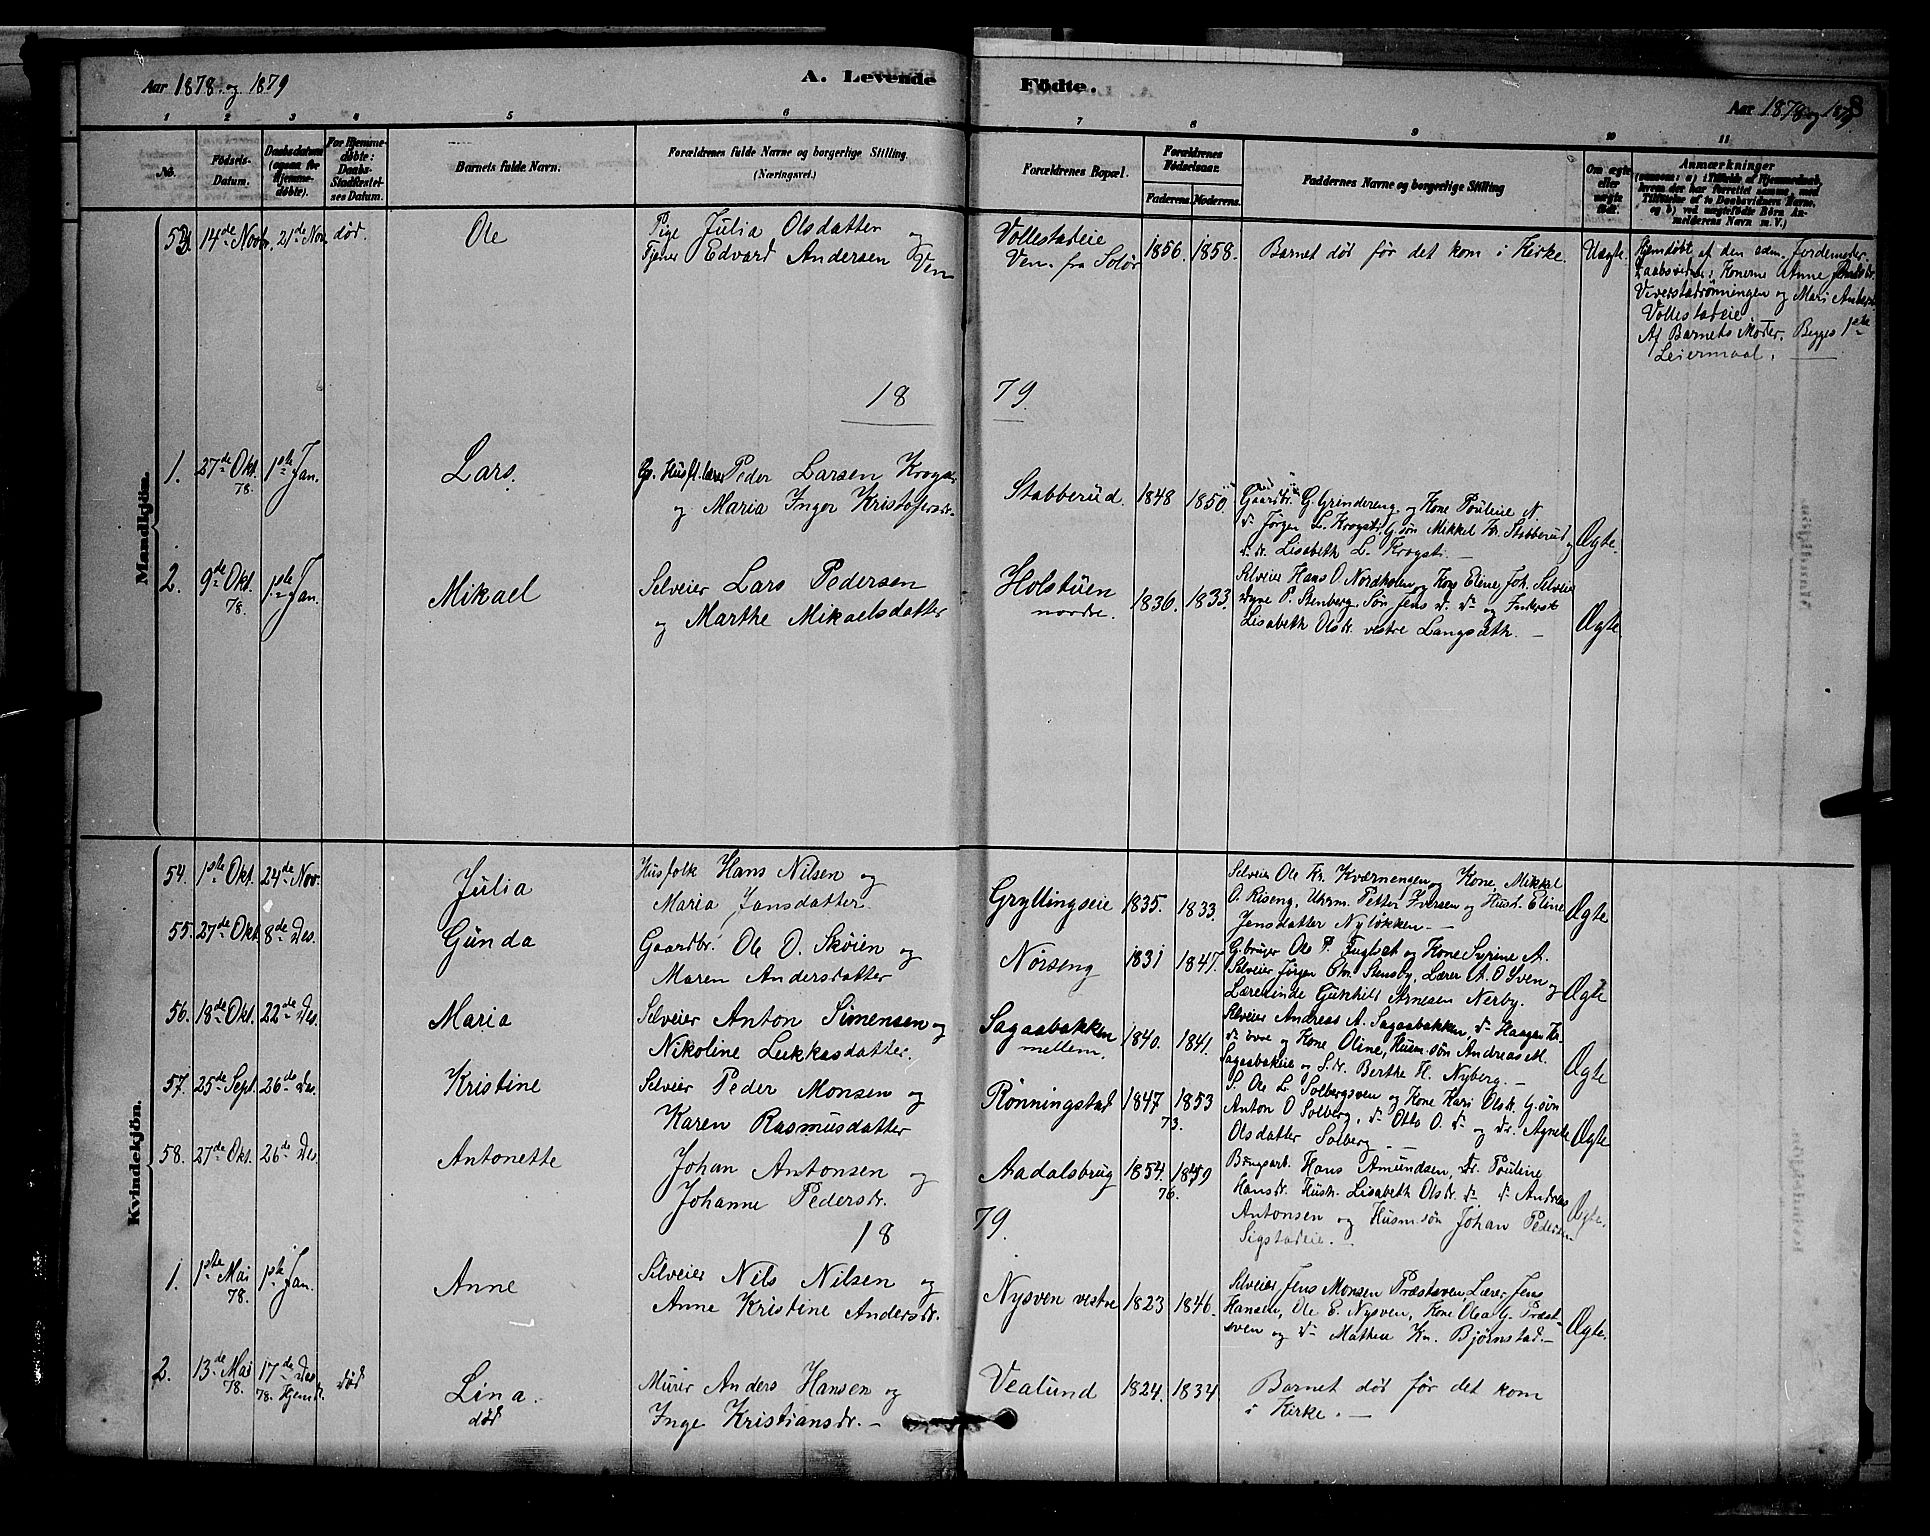 Aar 1878 og 1879
A. Levende Födte.
Aar 1878 og 1879.
8
1 2 3 4 5 6 7 8 9 10 11
No.
Födsels-
Datum.
Daabsdatum
(ogsaa for
Hjemme-
döbte).
For Hjemme-
döbte:
Daabs-
Stadfæstel-
ses Datum.
Barnets fulde Navn.
Forældrenes fulde Navne og borgerlige Stilling
(Næringsvei.)
Forældrenes Bopæl.
Forældrenes
Födselsaar.
Faderens. Moderens.
Faddernes Navne og borgerlige Stilling
Om ægte
eller
uægte
født.
Anmærkninger
Mandkjön.
14de Novbr. 21de Nov. død. Ole
Pige Julia Olsdatter og
Tjener Edvard Andersen Ven
Vollestadeie
Ven. fra Solør
1856. 1858.
Barnet død før det kom i Kirke.
Uægte.
Hjemdøbt af den exam. Jordemoder.
Daabsvidner: Konerne Anne
Viverstadrønningen og Mari
Vollestadeie.
Af Barnets Moder. Begges 1ste
Leiermaal.
18 79.
1. 27de Okt. 78. 1ste Jan. Lars.
Peder Larsen Krogst.
og Maria Inger Kristofersdr.
Stabberud. 1848 1850.
Gaardbr. G. Grindereng og Kone Pouline N.
d. Jørgen L. Krogst. G. søn Mikkel Kr. Stabberud og
d. dr. Lisabeth L. Krogst. —
Ægte.
2. 9de Okt. 78. 1ste Jan. Mikael
Selveier Lars Pedersen
og Marthe Mikaelsdatter
Holstuen
nordre.
1836. 1833.
Selveier Hans O. Nordholen og Kone Eline Joh. Selveier
P. Stenberg. Søn Jens d. d. og
Lisabeth Olsdr. vestre Langsæth. —
Ægte.
Kvindekjön.
54. 1ste Okt. 24de Nov. Julia
Husfolk Hans Nilsen og
Maria Jansdatter.
Gryllingseie 1835. 1833.
Selveier Ole Kr. Kværnensen og Kone, Mikkel
O. Riseng, Uhrm. Petter Iversen og Hust. Eline
Jensdatter Nyløkken. —
Ægte
55. 27de Okt. 8de Des. Gunda
Gaardbr. Ole O. Skøien og
Maren Andersdatter
Nørseng 1831 1847.
G.bruger Ole P. Fuglset og Kone Syrine A.
Selveier Jørgen Chr. Stensby, Lærer A. O. Sven og
Lærerinde Gunhild Arnesen Nerby.
Ægte
56. 18de Okt. 22de Des. Maria
Selveier Anton Simensen og
Nikoline Lukkasdatter.
Sagaabakken
mellem.
1840. 1841.
Selveier Andreas A. Sagaabakken, d. Haagen Kr.
d. øvre og Kone Oline, Husm.søn Andreas M.
Sagaabakeie og S. dr. Berthe H. Nyberg. —
Ægte
57. 25de Sept. 26de Des. Kristine
Selveier Peder Monsen og
Karen Rasmusdatter
Rønningstad 1847 1853
73.
S. Ole L. Solbergsven og Kone Kari Olsdr. G. søn
Anton O Solberg, d. Otto O. d. og dr. Agnete
Olsdatter Solberg —
Ægte
58. 27de Okt. 26de Des. Antonette
Johan Antonsen og
Johanne Pedersdr.
Aadalsbrug 1854. 1859
76.
Brugsarb. Hans Amundsen, Dr. Pouline
Hansdr. Hustr. Lisabeth Olsdr. d. d. Andreas
Antonsen og Husm.søn Johan Pedersen
Sigstadeie. —
Ægte.
18 79.
1. 1ste Mai 78. 1ste Jan. Anne
Selveier Nils Nilsen og
Anne Kristine Andersdr.
Nysven vestre 1823 1846.
Selveier Jens Monsen Præstsven, Lærer Jens
Hansen, Ole E. Nysven, Kone Olea G. Præst-
sven og d. Mathea Kn. Bjørnstad. —
Ægte.
2. 13de Mai 78. 17de Des 78. Hjemd. død
Lina.
død
Murer Anders Hansen og
Inge Kristiansdr. —
Vealund 1824. 1834.
Barnet død før det kom
i Kirke. —